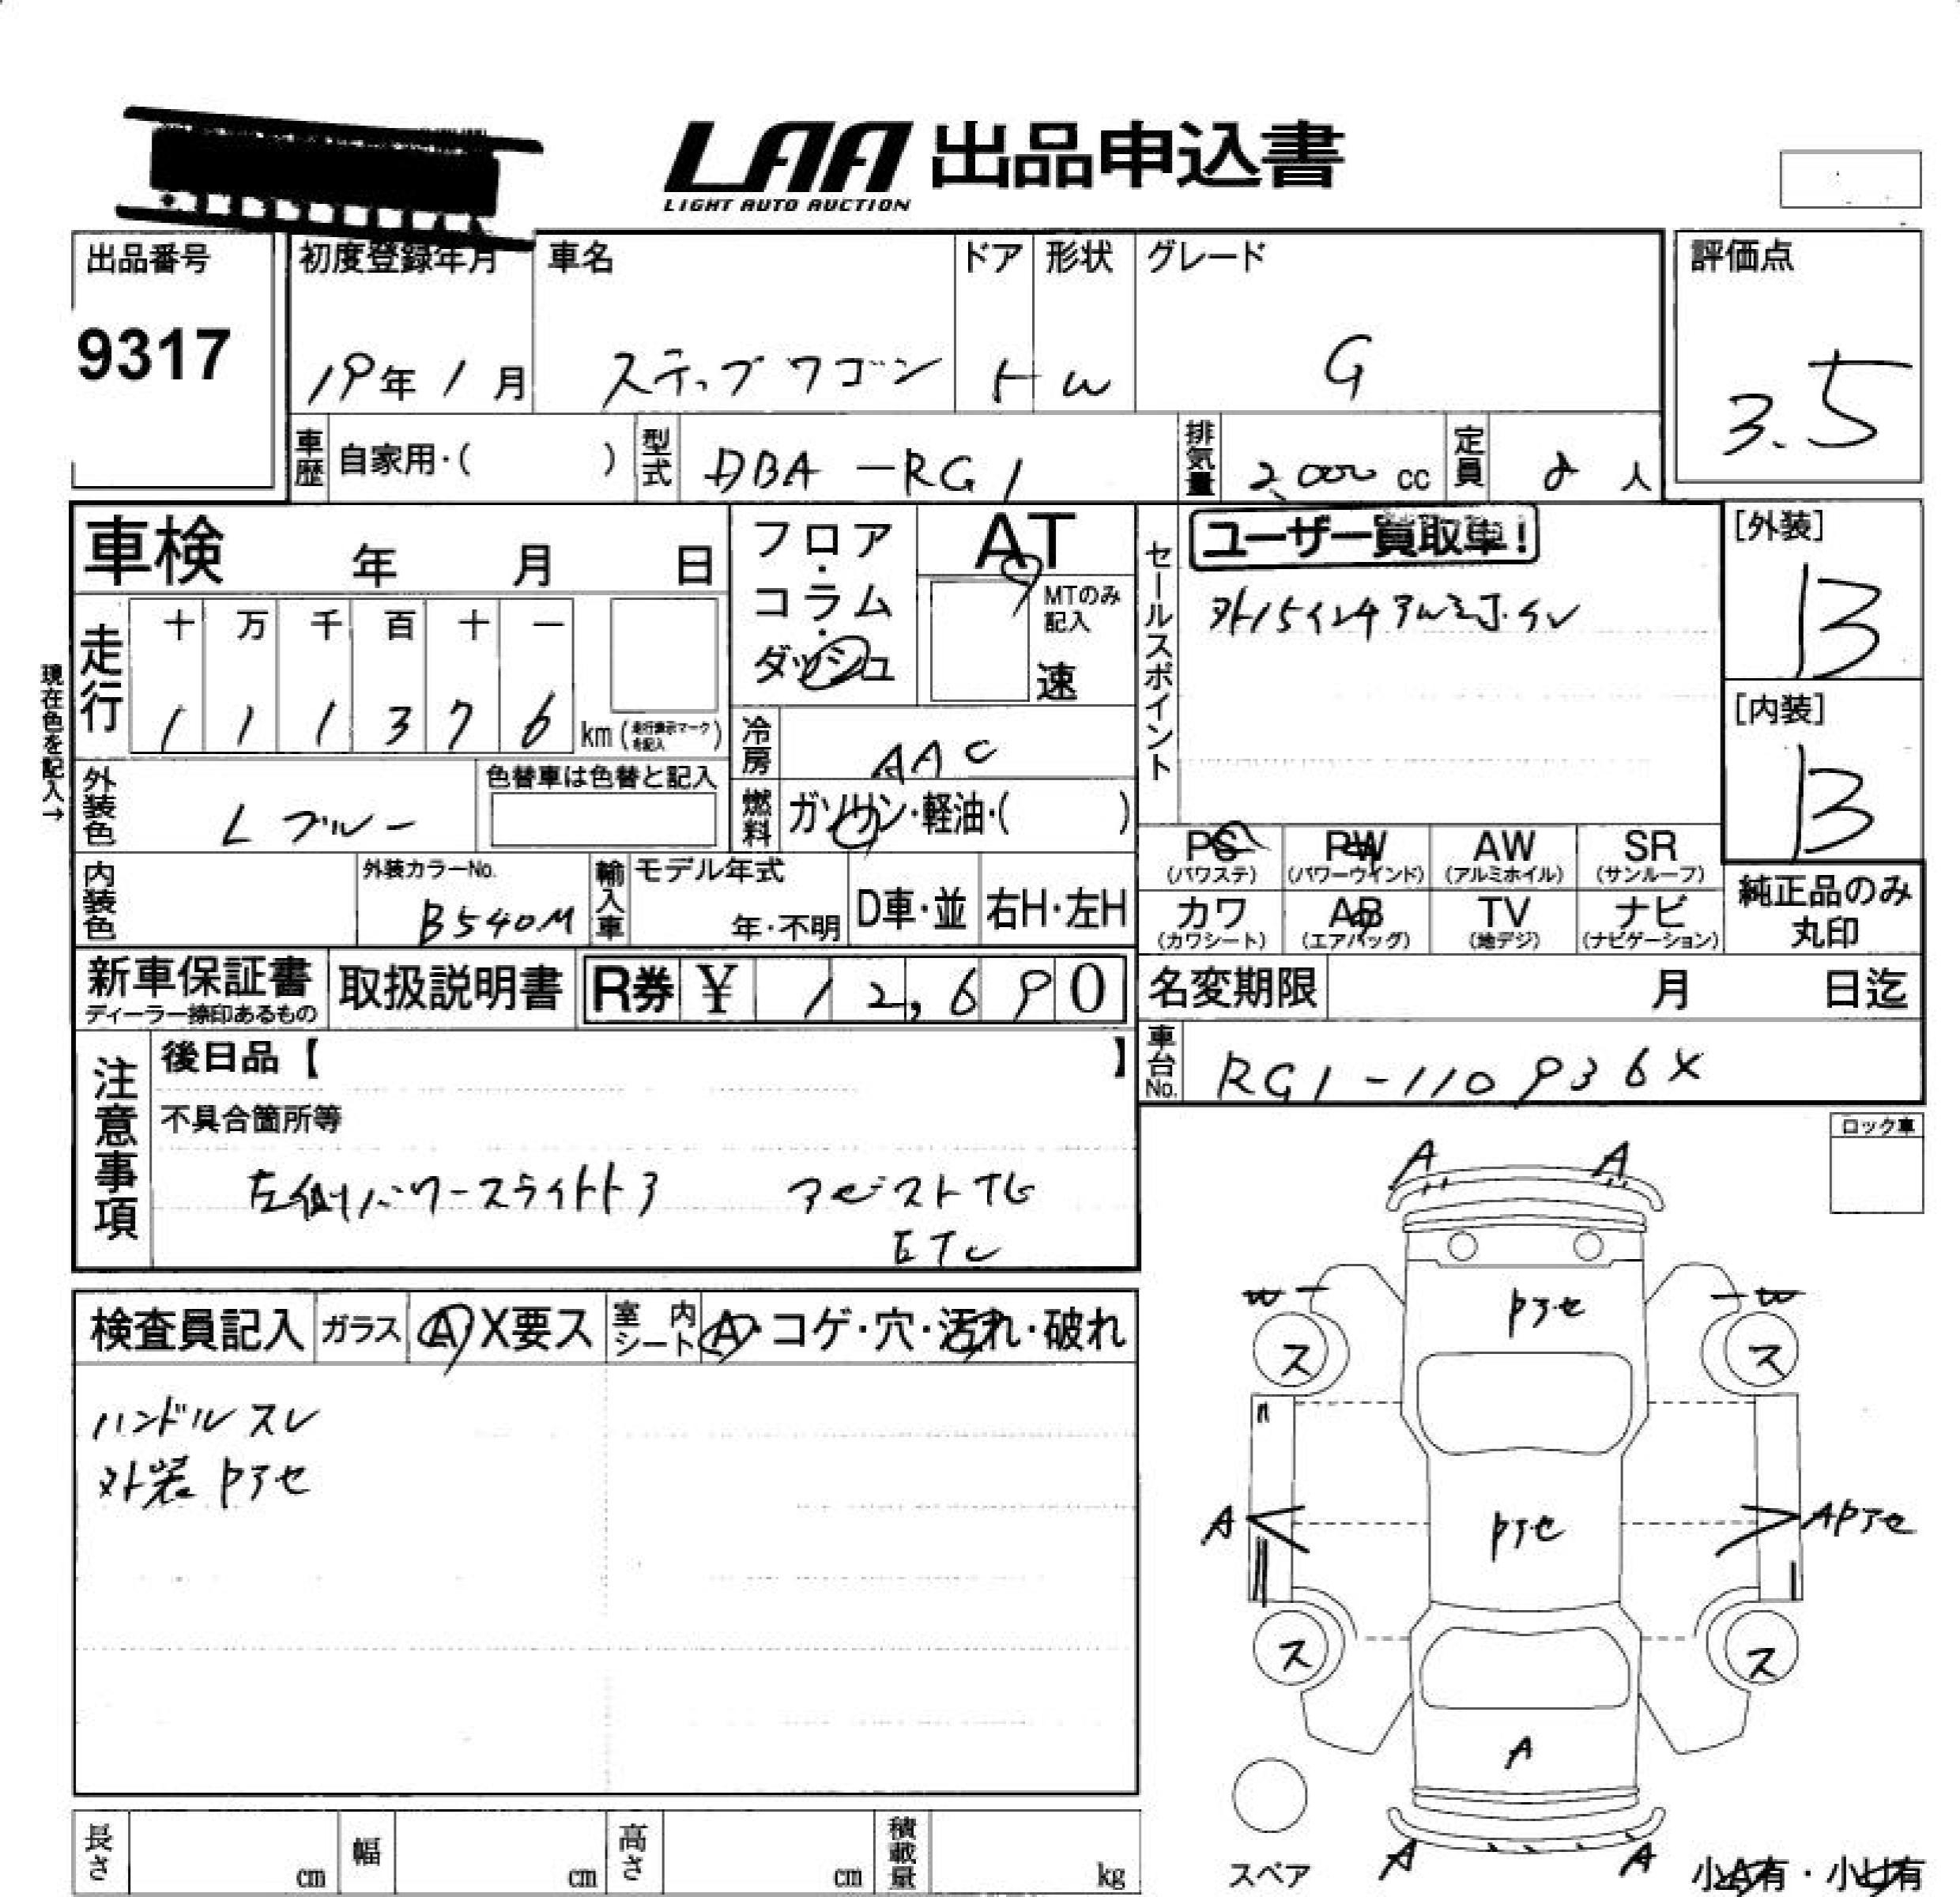 LAA 出品申込書
LIGHT AUTO AUCTION
出品番号
9317
初度登録年月
19年1月
車名
ステップワゴン
ドア
形状
W
グレード
G
評価点
3.5
車歴
自家用・( )
型式
DBA-RG1
排気量
2,000 cc
定員
8 人
車検 年 月 日
フロア・コラム・ダッシュ
AT
MTのみ記入
速
走行
十 万 千 百 十 一
1 1 1 3 7 6
km (走行表示マークを記入)
現在色を記入→
冷房
AAC
燃料
ガソリン・軽油・( )
外装色
Lブルー
色替車は色替と記入
内装色
外装カラーNo.
B540M
輸入車
モデル年式
年・不明
D車・並
右H・左H
新車保証書
ディーラー捺印あるもの
取扱説明書
R券 ¥ 12,690
セールスポイント
ユーザー買取車!
[外装]
B
[内装]
B
PS
(パワステ)
PW
(パワーウインド)
AW
(アルミホイル)
SR
(サンルーフ)
カワ
(カワシート)
AB
(エアバッグ)
TV
(地デジ)
ナビ
(ナビゲーション)
純正品のみ
丸印
名変期限 月 日迄
車台No.
RG1-110936X
注意事項
後日品【 】
不具合箇所等
左側パワースライドドア
ETC
検査員記入
ガラス
A X要ス
室内シート
A・コゲ・穴・汚れ・破れ
ハンドルスレ
外装 アセ
ロック車
A A
W W
アセ
ス ス
A アセ Aアセ
ス ス
A
A A
スペア
小A有・小U有
長さ cm
幅 cm
高さ cm
積載量 kg